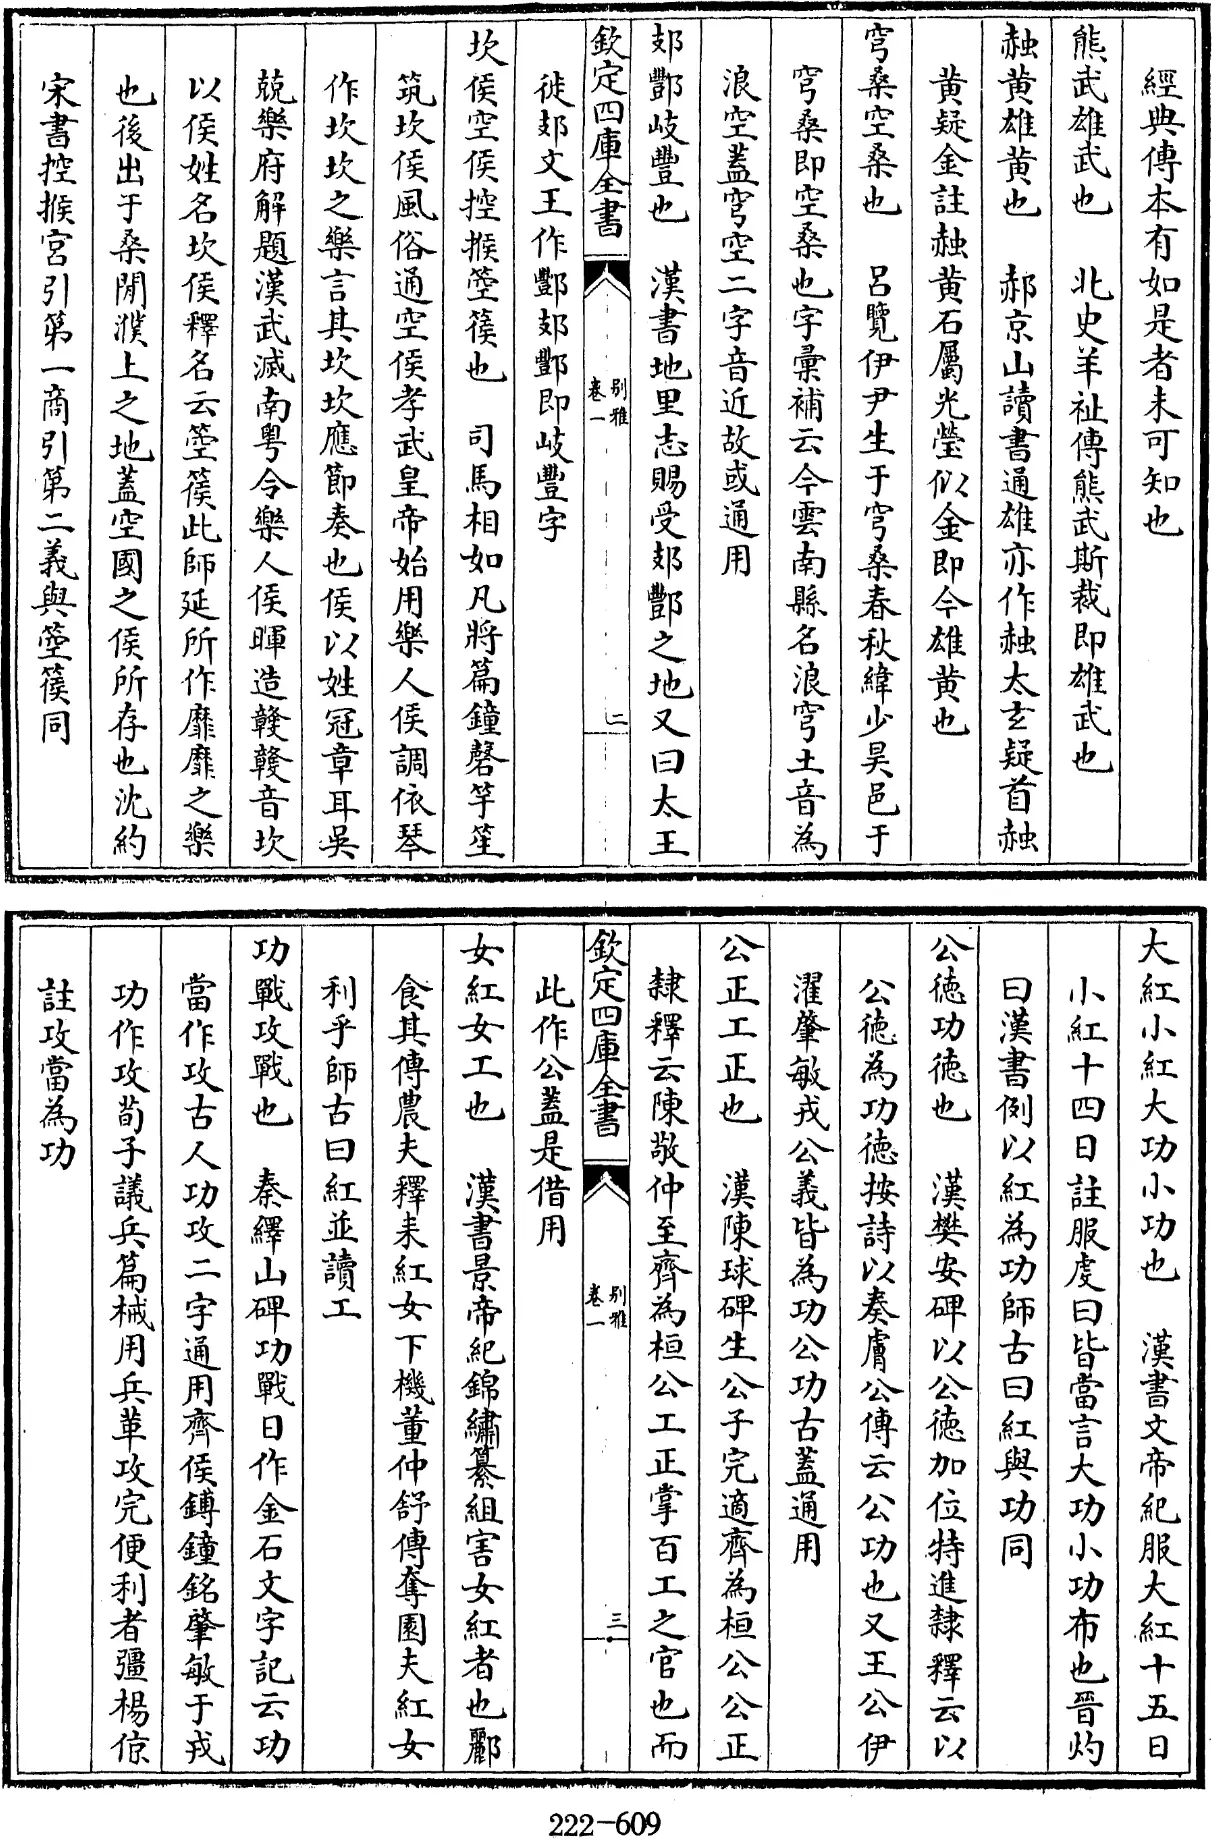 經典傳本有如是者未可知也
熊武雄武也　北史羊祉傳熊武斯裁即雄武也
䧺黄雄黄也　郝京山讀書通雄亦作䧺太玄疑首䧺
黄疑金註䧺黄石屬光瑩似金即今雄黄也
穹桑空桑也　呂覽伊尹生于穹桑春秋緯少昊邑于
穹桑即空桑也字彙補云今雲南縣名浪穹土音為
浪空蓋穹空二字音近故或通用
郊酆岐豐也　漢書地里志賜受郊酆之地又曰太王
欽定四庫全書
别雅
卷一
二
徙郊文王作酆郊酆即岐豐字
坎侯空侯控揳箜篌也　司馬相如凡將篇鐘磬竽笙
筑坎侯風俗通空侯孝武皇帝始用樂人侯調依琴
作坎坎之樂言其坎坎應節奏也侯以姓冠章耳吳
兢樂府解題漢武滅南粤令樂人侯暉造竷竷音坎
以侯姓名坎侯釋名云箜篌此師延所作靡靡之樂
也後出于桑閒濮上之地蓋空國之侯所存也沈約
宋書控揳宮引第一商引第二義與箜篌同
大紅小紅大功小功也　漢書文帝紀服大紅十五日
小紅十四日註服虔曰皆當言大功小功布也晉灼
曰漢書例以紅為功師古曰紅與功同
公德功德也　漢樊安碑以公德加位特進隸釋云以
公德為功德按詩以奏膚公傳云公功也又王公伊
濯肇敏戎公義皆為功公功古蓋通用
公正工正也　漢陳球碑生公子完適齊為桓公公正
隸釋云陳敬仲至齊為桓公工正掌百工之官也而
欽定四庫全書
别雅
卷一
三
此作公蓋是借用
女紅女工也　漢書景帝紀錦繡纂組害女紅者也酈
食其傳農夫釋耒紅女下機董仲舒傳奪園夫紅女
利乎師古曰紅並讀工
功戰攻戰也　秦繹山碑功戰日作金石文字記云功
當作攻古人功攻二字通用齊侯鎛鐘銘肇敏于戎
功作攻荀子議兵篇械用兵革攻完便利者彊楊倞
註攻當為功
222-609